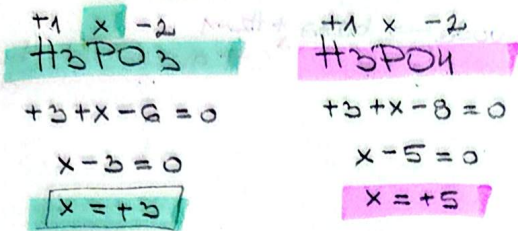 +1 x -2
H3PO3
+3+x-6=0
x-3=0
x=+3
+1 x -2
H3PO4
+3+x-8=0
x-5=0
x=+5